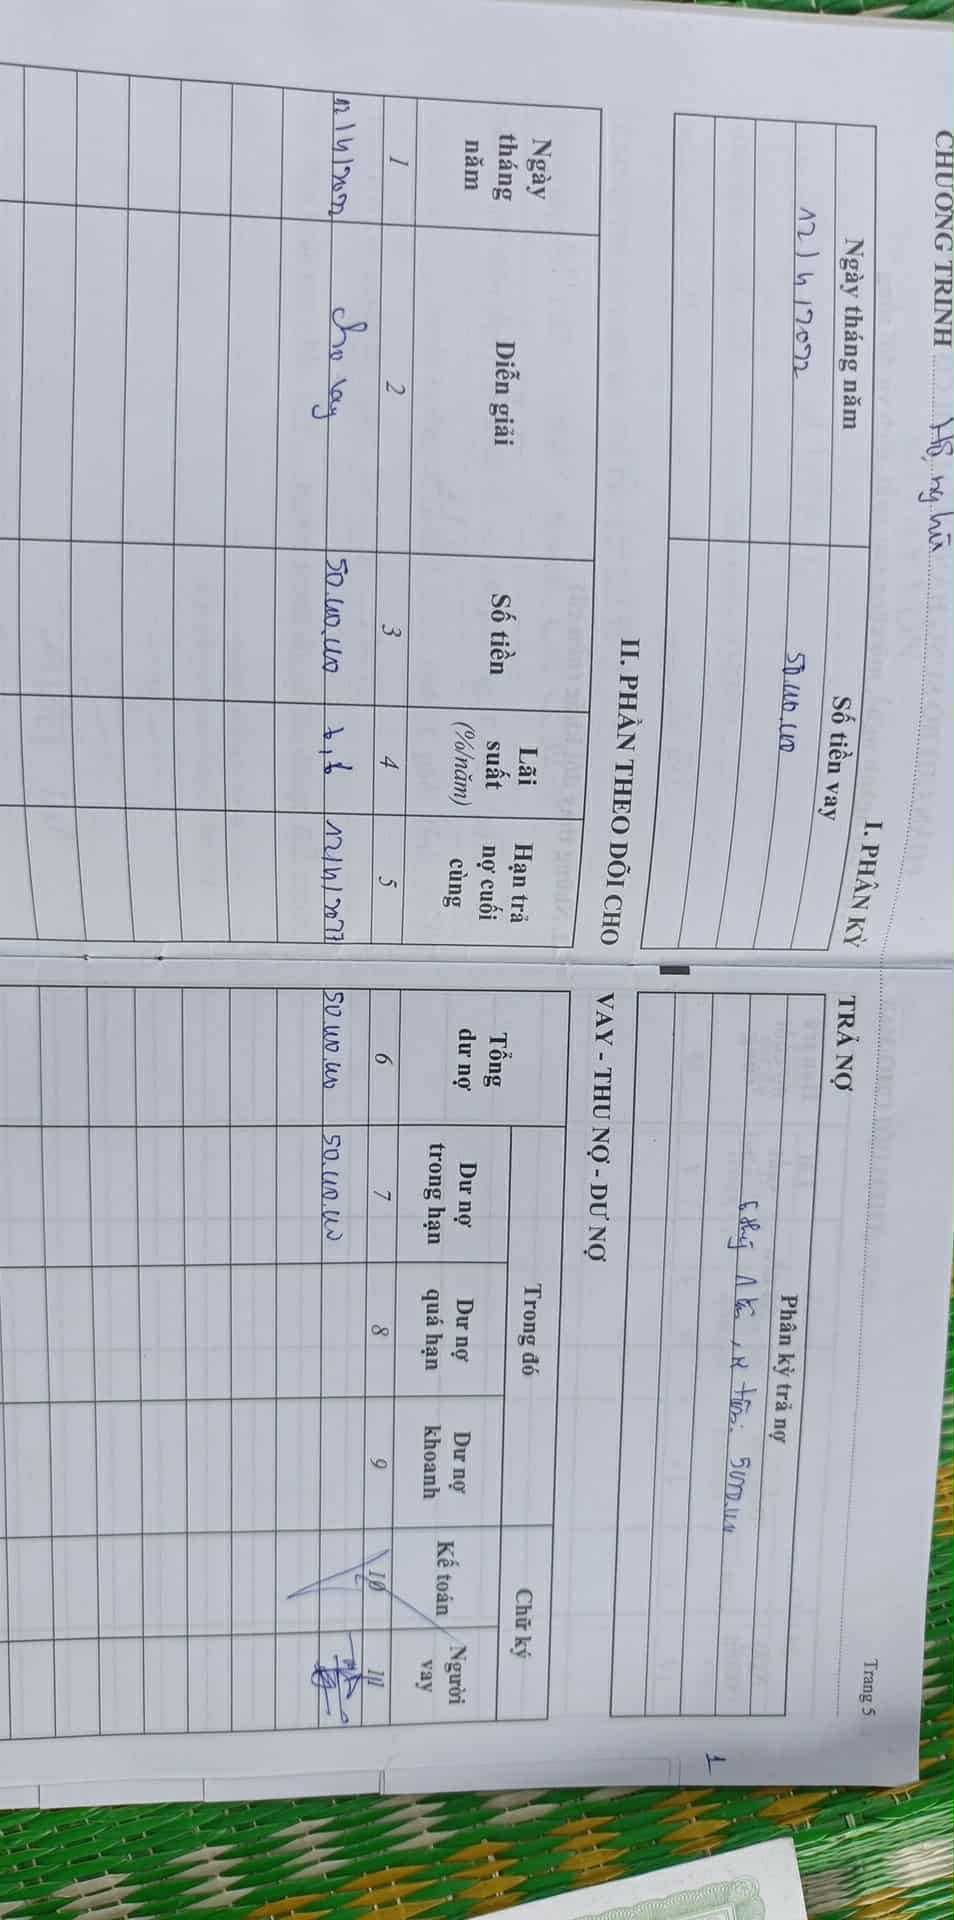 Trang 5
CHƯƠNG TRÌNH ........ Hộ nghèo
I. PHÂN KỲ TRẢ NỢ
Ngày tháng năm Số tiền vay Phân kỳ trả nợ
12/4/2022 50.000.000
6 tháng 1 lần, số tiền: 5000.000
1
II. PHẦN THEO DÕI CHO VAY - THU NỢ - DƯ NỢ
Ngày tháng năm Diễn giải Số tiền Lãi suất (%/năm) Hạn trả nợ cuối cùng Tổng dư nợ Trong đó Chữ ký
Dư nợ trong hạn Dư nợ quá hạn Dư nợ khoanh Kế toán Người vay
1 2 3 4 5 6 7 8 9 10 11
12/4/2022 Cho vay 50.000.000 6,6 12/4/2027 50.000.000 50.000.000